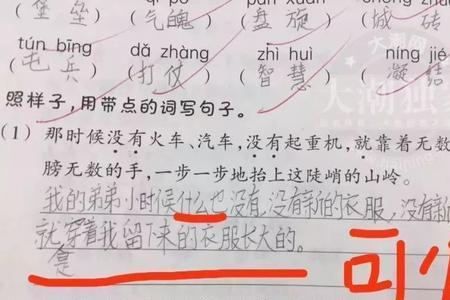 bǎo lěi qì pò pán xuán chéng zhuān
(堡垒)(气魄)(盘旋)(城砖)
tún bīng dǎ zhàng zhì huì níng jié
(屯兵)(打仗)(智慧)(凝结)
照样子，用带点的词写句子。
(1) 那时候没有火车、汽车，没有起重机，就靠着无数
膀无数的手，一步一步地抬上这陡峭的山岭。
我的弟弟小时候什么也没有，没有新的衣服，没有新
就穿着我留下来的衣服长大的。
是
可
大潮网
大潮独家